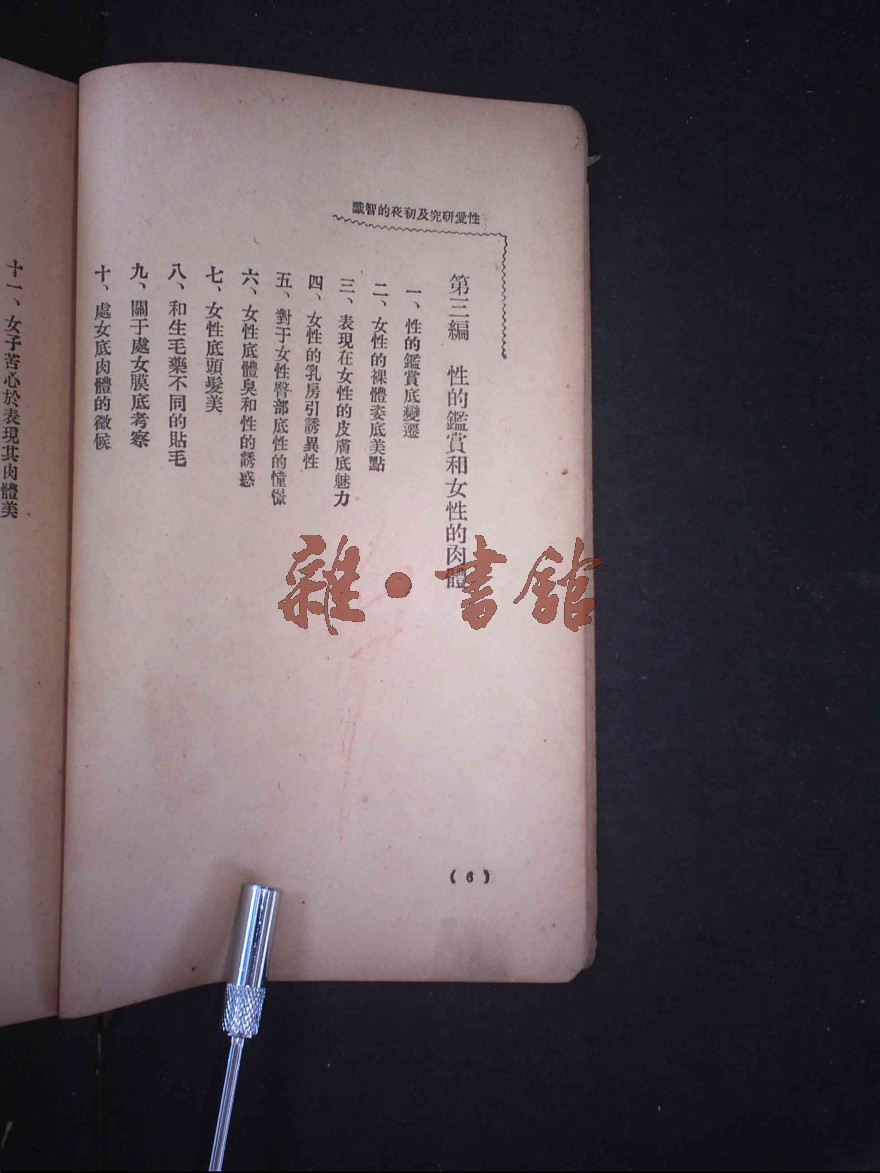 性愛研究及初夜的智識
第三編　性的鑑賞和女性的肉體
一、性的鑑賞底變遷
二、女性的裸體姿底美點
三、表現在女性的皮膚底魅力
四、女性的乳房引誘異性
五、對于女性臀部底性的憧憬
六、女性底體臭和性的誘惑
七、女性底頭髮美
八、和生毛藥不同的貼毛
九、關于處女膜底考察
十、處女底肉體的徵候
十一、女子苦心於表現其肉體美
(6)
雜·書館